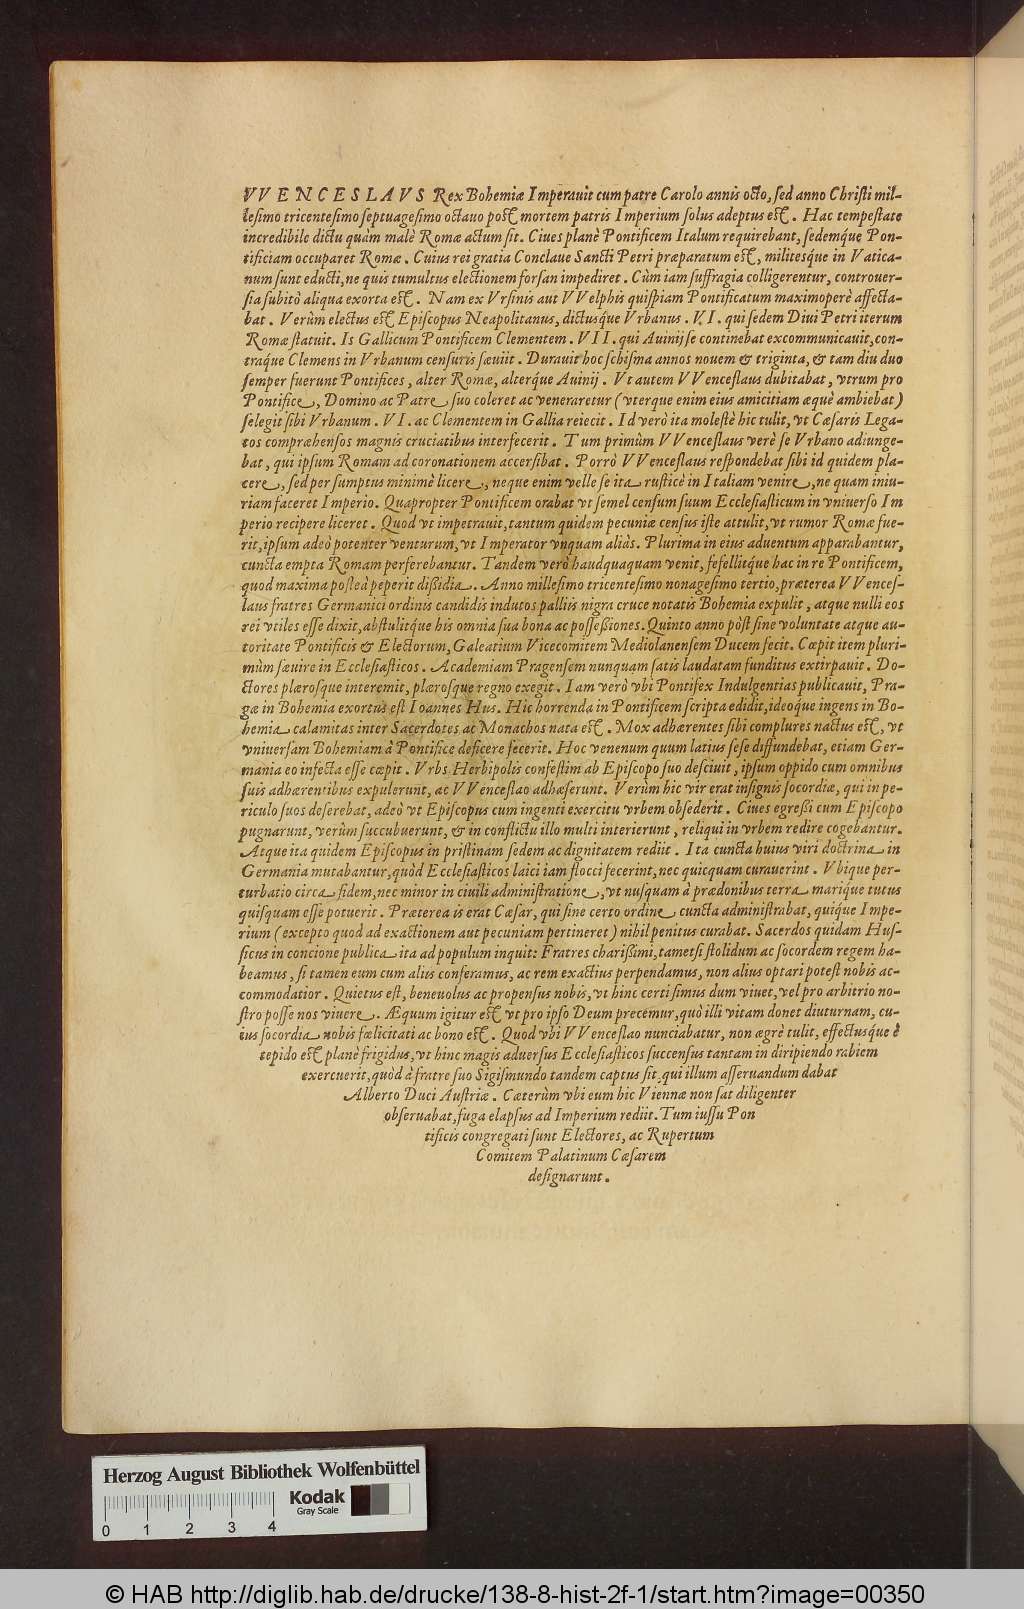 VVENCESLAVS Rex Bohemiæ Imperauit cum patre Carolo annis octo, sed anno Christi mil-
lesimo tricentesimo septuagesimo octauo post mortem patris Imperium solus adeptus est. Hac tempestate
incredibile dictu quàm malè Romæ actum sit. Ciues planè Pontificem Italum requirebant, sedemq́ue Pon-
tificiam occuparet Romæ. Cuius rei gratia Conclaue Sancti Petri præparatum est, militesq́ue in Vatica-
num sunt educti, ne quis tumultus electionem forsan impediret. Cùm iam suffragia colligerentur, controuer-
sia subitò aliqua exorta est. Nam ex Vrsinis aut VVelphis quispiam Pontificatum maximoperè affecta-
bat. Verùm electus est Episcopus Neapolitanus, dictusq́ue Vrbanus. VI. qui sedem Diui Petri iterum
Romæ statuit. Is Gallicum Pontificem Clementem. VII. qui Auinij se continebat excommunicauit, con-
traq́ue Clemens in Vrbanum censuris sæuiit. Durauit hoc schisma annos nouem & triginta, & tam diu duo
semper fuerunt Pontifices, alter Romæ, alterq́ue Auinij. Vt autem VVenceslaus dubitabat, vtrum pro
Pontifice, Domino ac Patre suo coleret ac veneraretur (vterque enim eius amicitiam æquè ambiebat)
selegit sibi Vrbanum. VI. ac Clementem in Gallia reiecit. Id verò ita molestè hic tulit, vt Cæsaris Lega-
tos compræhensos magnis cruciatibus interfecerit. Tum primùm VVenceslaus verè se Vrbano adiunge-
bat, qui ipsum Romam ad coronationem accersibat. Porrò VVenceslaus respondebat sibi id quidem pla-
cere, sed per sumptus minimè licere, neque enim velle se ita rusticè in Italiam venire, ne quam iniu-
riam faceret Imperio. Quapropter Pontificem orabat vt semel censum suum Ecclesiasticum in vniuerso Im
perio recipere liceret. Quod vt impetrauit, tantum quidem pecuniæ census iste attulit, vt rumor Romæ fue-
rit, ipsum adeò potenter venturum, vt Imperator vnquam aliàs. Plurima in eius aduentum apparabantur,
cuncta empta Romam perferebantur. Tandem verò haudquaquam venit, fefellitq́ue hac in re Pontificem,
quod maxima posteà peperit dißidia. Anno millesimo tricentesimo nonagesimo tertio, præterea VVences-
laus fratres Germanici ordinis candidis indutos palliis nigra cruce notatis Bohemia expulit, atque nulli eos
rei vtiles esse dixit, abstulitq́ue his omnia sua bona ac possessiones. Quinto anno pòst sine voluntate atque au-
toritate Pontificis & Electorum, Galeatium Vicecomitem Mediolanensem Ducem fecit. Cœpit item pluri-
mùm sæuire in Ecclesiasticos. Academiam Pragensem nunquam satis laudatam funditus extirpauit. Do-
ctores plærosque interemit, plærosque regno exegit. Iam verò vbi Pontifex Indulgentias publicauit, Pra-
gæ in Bohemia exortus est Ioannes Hus. Hic horrenda in Pontificem scripta edidit, ideoq́ue ingens in Bo-
hemia calamitas inter Sacerdotes ac Monachos nata est. Mox adhærentes sibi complures nactus est, vt
vniuersam Bohemiam à Pontifice deficere fecerit. Hoc venenum quum latius sese diffundebat, etiam Ger-
mania eo infecta esse cœpit. Vrbs Herbipolis confestim ab Episcopo suo desciuit, ipsum oppido cum omnibus
suis adhærentibus expulerunt, ac VVenceslao adhæserunt. Verùm hic vir erat insignis socordiæ, qui in pe-
riculo suos deserebat, adeò vt Episcopus cum ingenti exercitu vrbem obsederit. Ciues egreßi cum Episcopo
pugnarunt, verùm succubuerunt, & in conflictu illo multi interierunt, reliqui in vrbem redire cogebantur.
Atque ita quidem Episcopus in pristinam sedem ac dignitatem rediit. Ita cuncta huius viri doctrina in
Germania mutabantur, quòd Ecclesiasticos laici iam flocci fecerint, nec quicquam curauerint. Vbique per-
turbatio circa fidem, nec minor in ciuili administratione, vt nusquam à prædonibus terra mariq́ue tutus
quisquam esse potuerit. Præterea is erat Cæsar, qui sine certo ordine cuncta administrabat, quiq́ue Impe-
rium (excepto quod ad exactionem aut pecuniam pertineret) nihil penitus curabat. Sacerdos quidam Hus-
sicus in concione publica ita ad populum inquit: Fratres charißimi, tametsi stolidum ac socordem regem ha-
beamus, si tamen eum cum alius conferamus, ac rem exactius perpendamus, non alius optari potest nobis ac-
commodatior. Quietus est, beneuolus ac propensus nobis, vt hinc certi simus dum viuet, vel pro arbitrio no-
stro posse nos viuere. Æquum igitur est vt pro ipso Deum precemur, quò illi vitam donet diuturnam, cu-
ius socordia nobis fœlicitati ac bono est. Quod vbi VVenceslao nunciabatur, non ægrè tulit, effectusq́ue è
tepido est planè frigidus, vt hinc magis aduersus Ecclesiasticos succensus tantam in diripiendo rabiem
exercuerit, quòd à fratre suo Sigismundo tandem captus sit, qui illum asseruandum dabat
Alberto Duci Austriæ. Cæterùm vbi eum hic Viennæ non sat diligenter
obseruabat, fuga elapsus ad Imperium rediit. Tum iussu Pon
tificis congregati sunt Electores, ac Rupertum
Comitem Palatinum Cæsarem
designarunt.
Herzog August Bibliothek Wolfenbüttel
Kodak
Gray Scale
0 1 2 3 4
© HAB http://diglib.hab.de/drucke/138-8-hist-2f-1/start.htm?image=00350